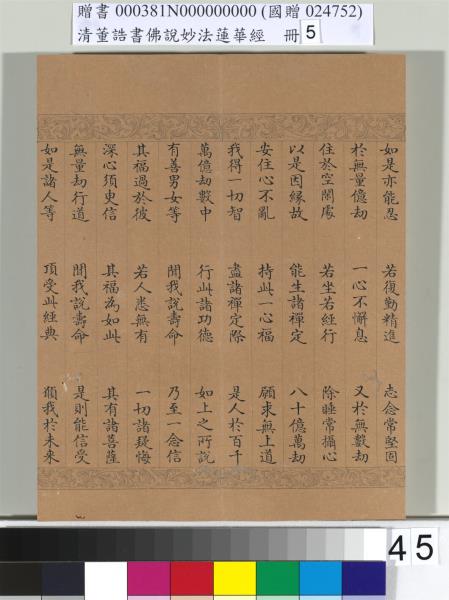 贈書 000381N000000000 (國贈 024752)
清董誥書佛說妙法蓮華經 冊 5
如是亦能忍 若復勤精進 志念常堅固
於無量億劫 一心不懈息 又於無數劫
住於空閑處 若坐若經行 除睡常攝心
以是因緣故 能生諸禪定 八十億萬劫
安住心不亂 持此一心福 願求無上道
我得一切智 盡諸禪定際 是人於百千
萬億劫數中 行此諸功德 如上之所說
有善男女等 聞我說壽命 乃至一念信
其福過於彼 若人悉無有 一切諸疑悔
深心須臾信 其福為如此 其有諸菩薩
無量劫行道 聞我說壽命 是則能信受
如是諸人等 頂受此經典 願我於未來
45